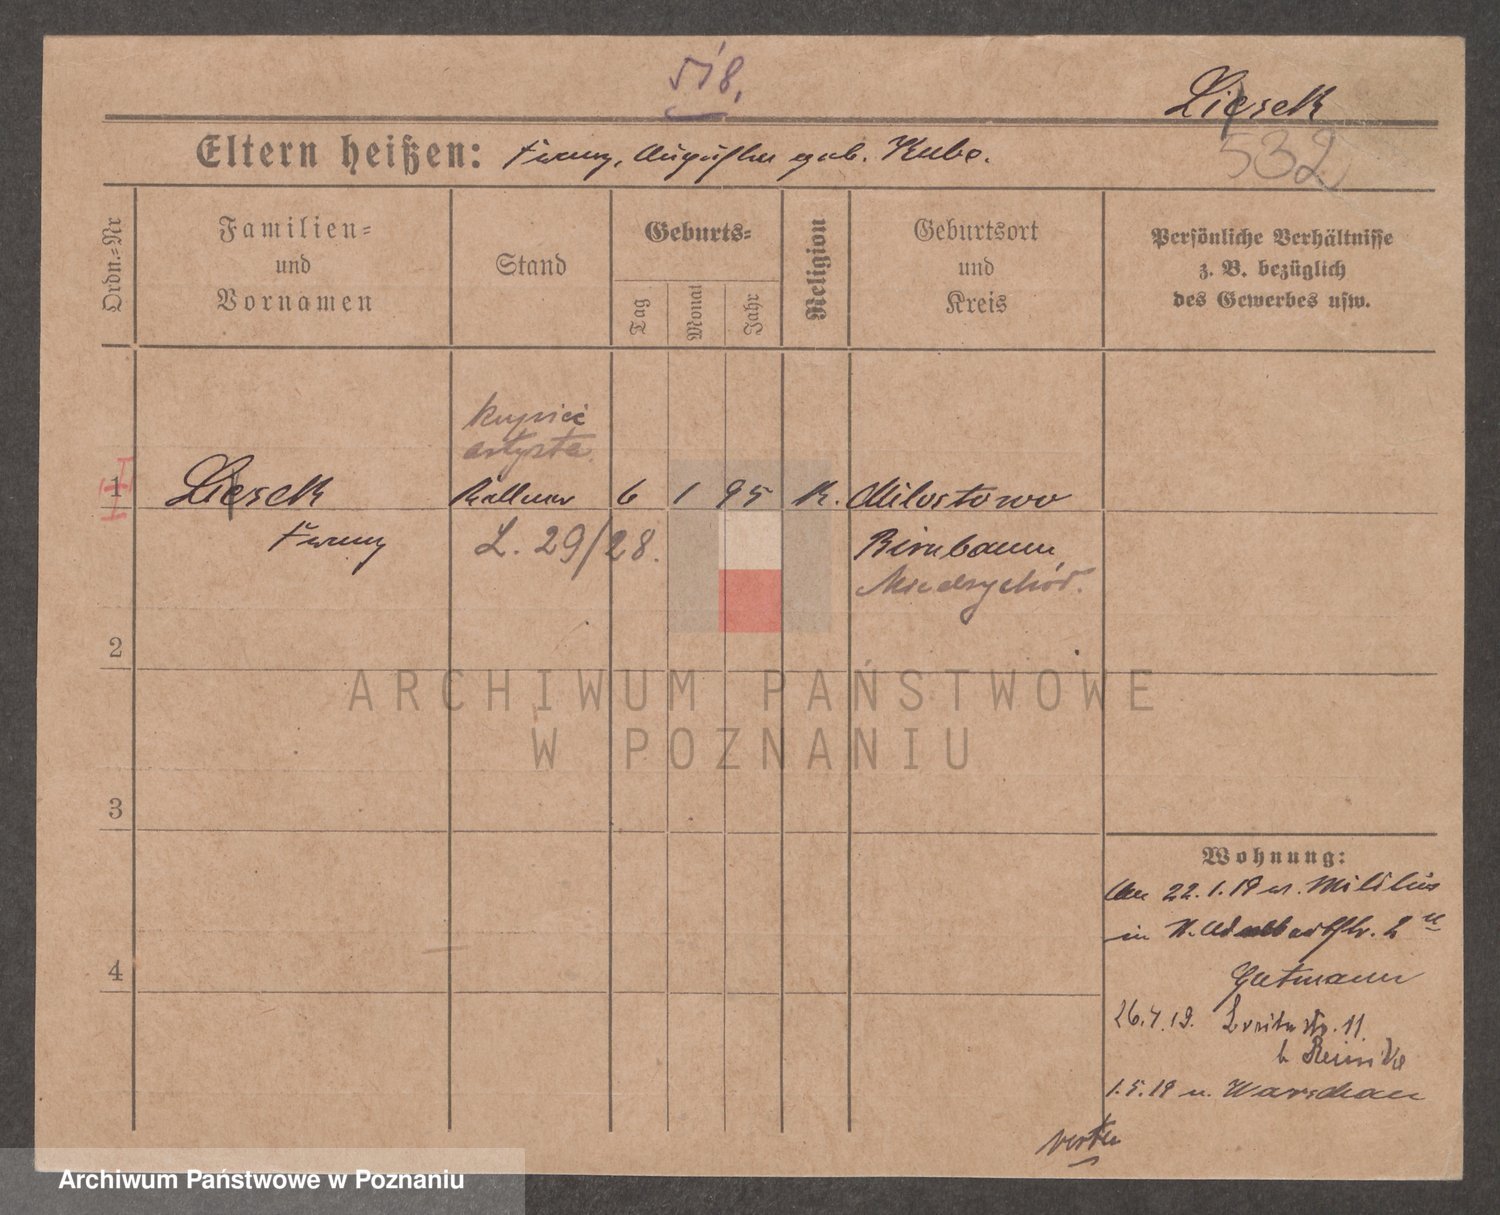 518.
Liesek
532
Eltern heißen: Franz, Auguste geb. Kube.
Ordn.-Nr
Familien-
und
Vornamen
Stand
Geburts-
Tag
Monat
Jahr
Religion
Geburtsort
und
Kreis
Persönliche Verhältnisse
z. B. bezüglich
des Gewerbes usw.
kupiec
artysta.
1 Liesek Kellner 6 1 95 K. Milostowo
Franz L. 29/28. Birnbaum
Miedzychód.
2
3
4
Wohnung:
Am 22.1.19 v. Militär
in St. Adalbertstr. 2
Gutmann
26.4.19. Breitestr. 11
b Reinike
1.5.19 n. Warschau
verte
ARCHIWUM PAŃSTWOWE
W POZNANIU
Archiwum Państwowe w Poznaniu